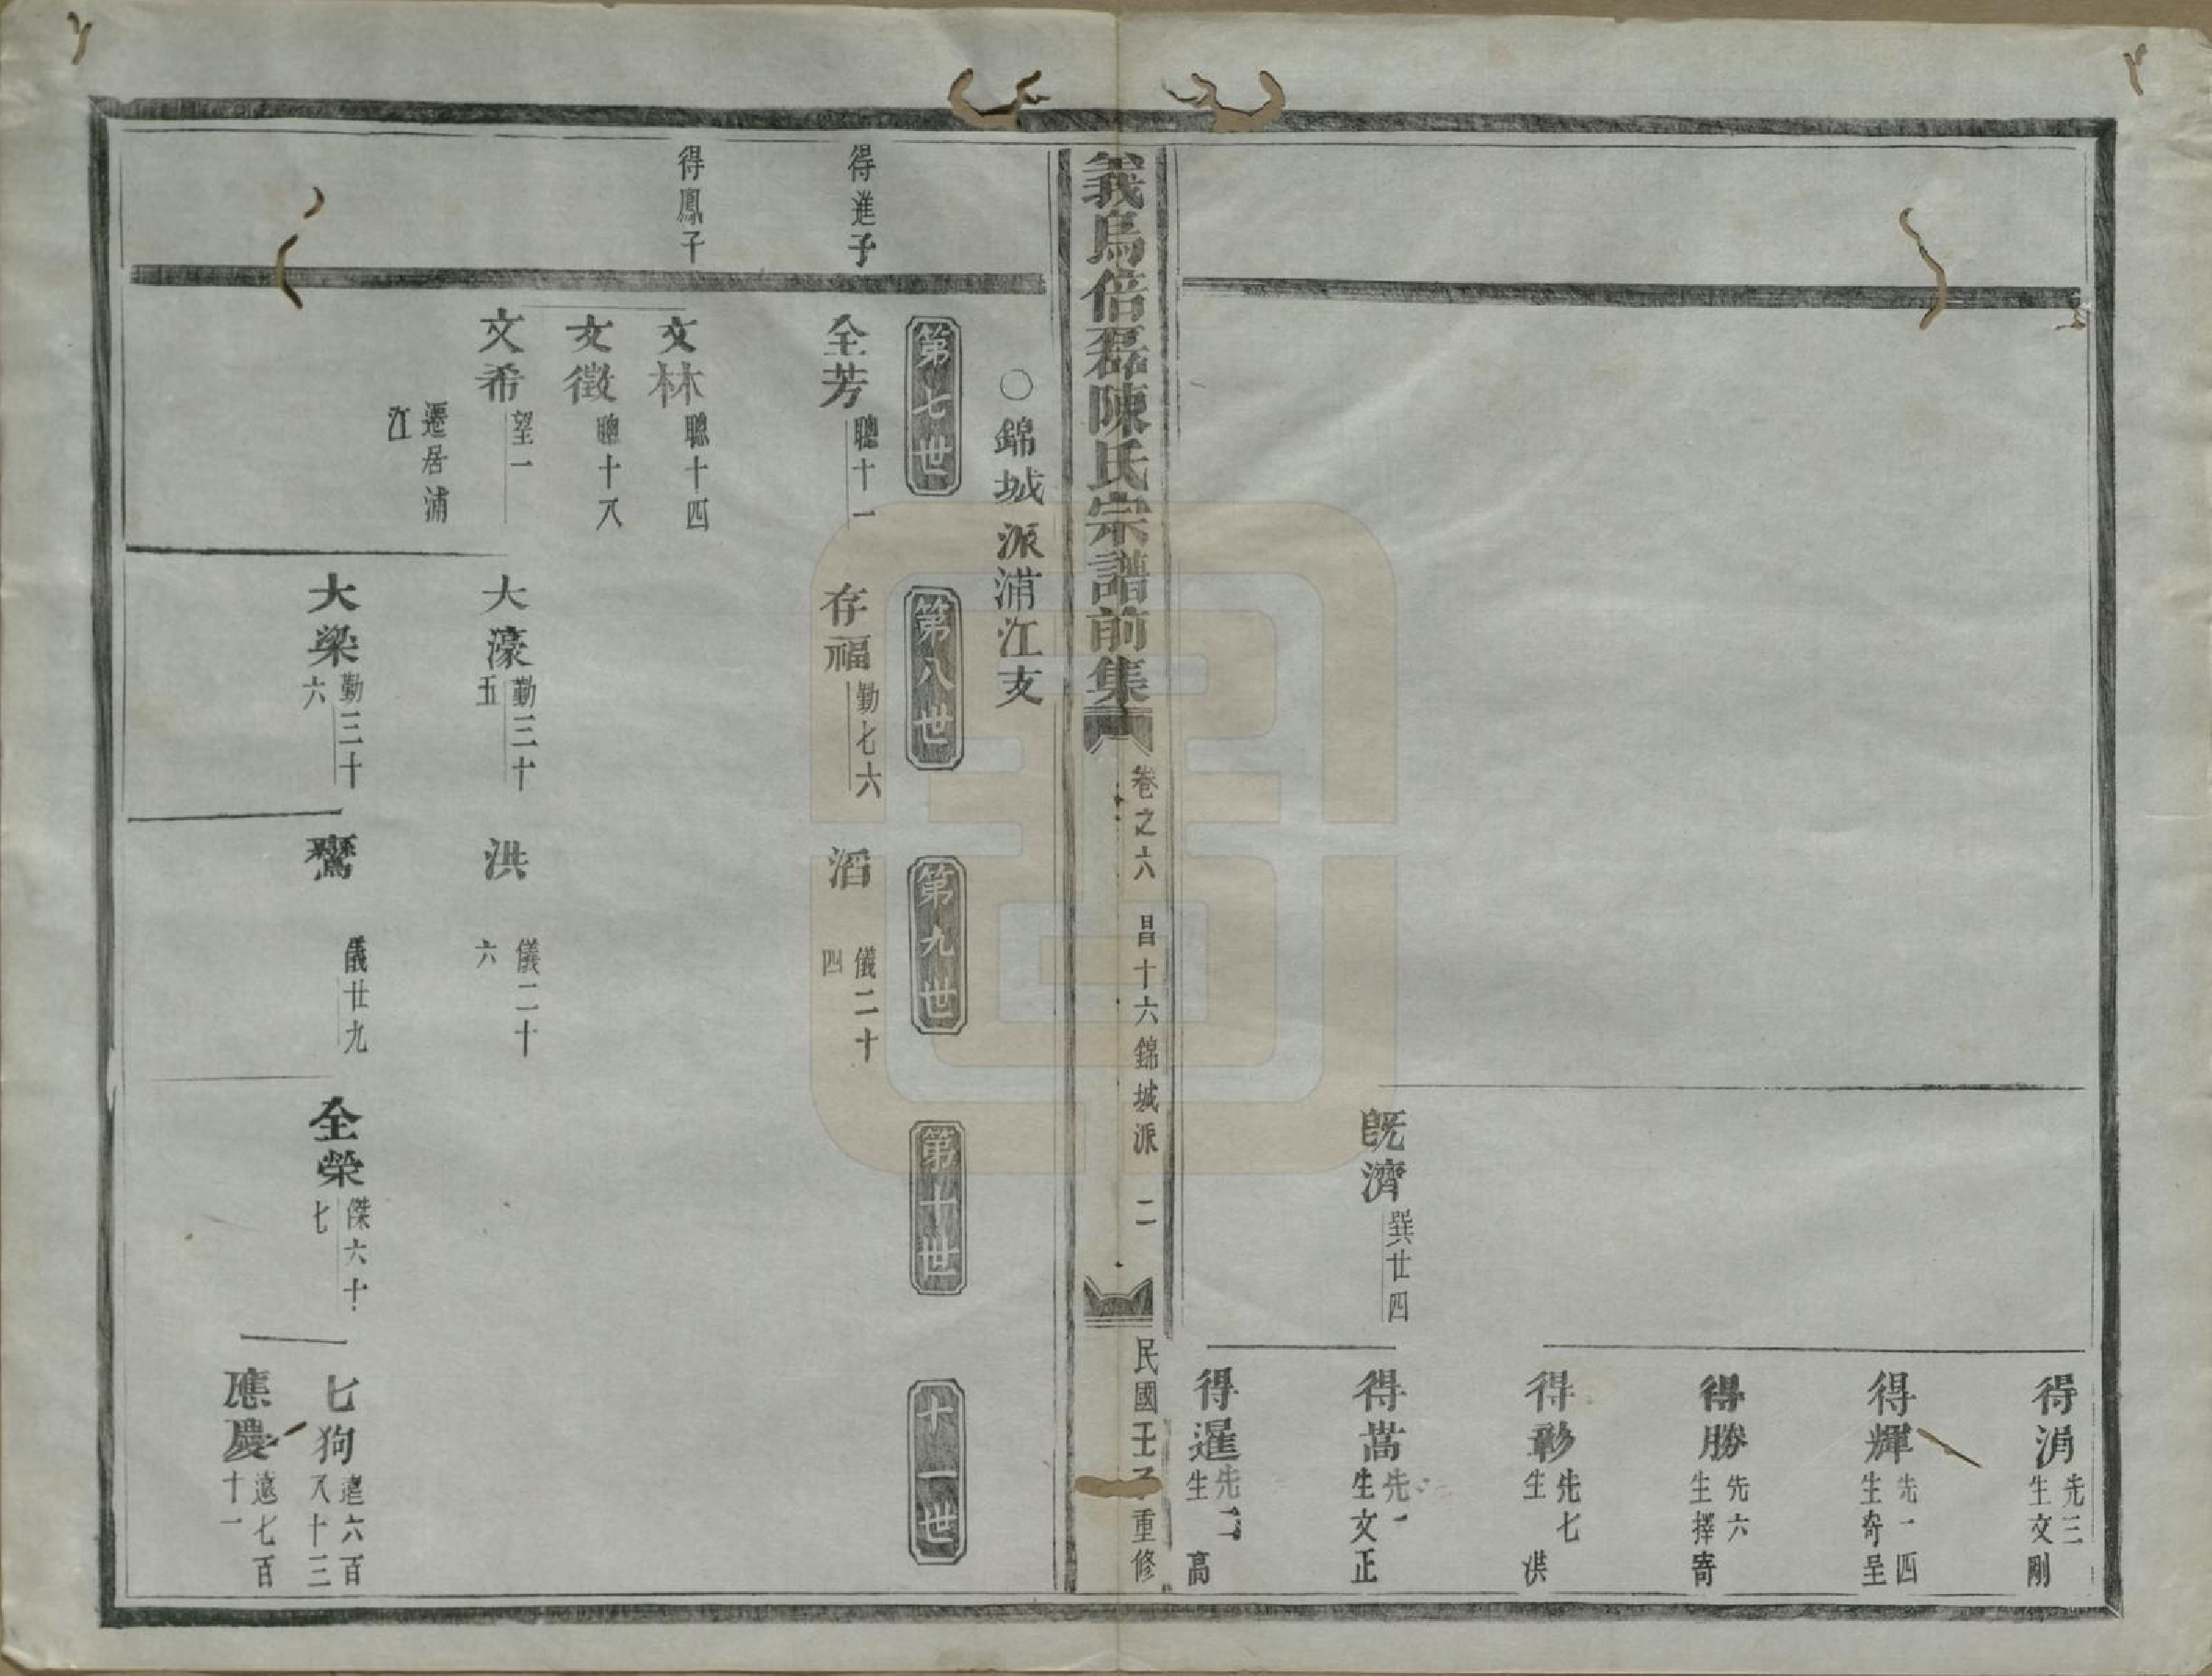 得涓 先三 生文剛
得輝 先一四 生奇呈
得勝 先六 生擇寄
得彩 先七 生洪
既濟 巽廿四
得嵩 先一 生文正
得暹 先二 生高
義烏倍磊陳氏宗譜前集
卷之六 昌十六錦城派 二
民國壬子重修
○錦城派浦江支
第七世 第八世 第九世 第十世 十一世
得進子
全芳 聰十一
存福 勤七六
滔 儀二十四
得鳳子
文林 聰十四
文徵 聰十八
文希 望一
遷居浦江
大濠 勤三十五
洪 儀二十六
大梁 勤三十六
儀廿九
全榮 傑六十七
七狗 遠六百八十三
應慶 遠七百十一